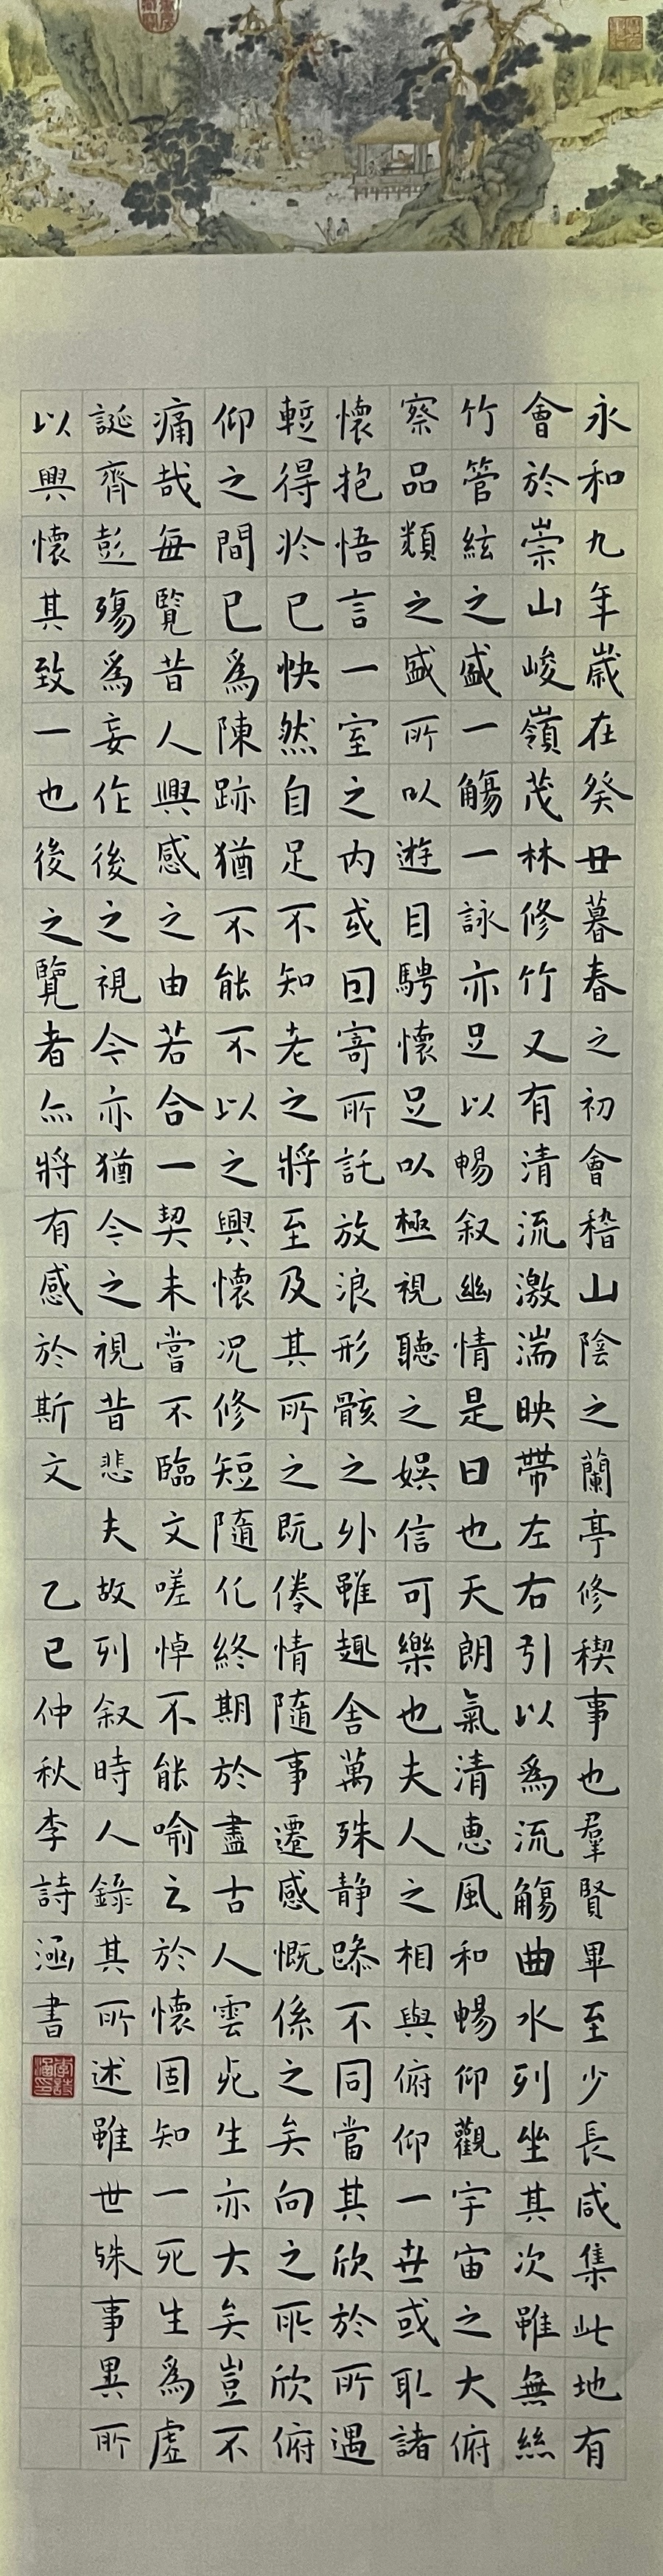 永和九年歲在癸丑暮春之初會稽山陰之蘭亭修稧事也羣賢畢至少長咸集此地有
會於崇山峻嶺茂林修竹又有清流激湍映帶左右引以爲流觴曲水列坐其次雖無絲
竹管絃之盛一觴一詠亦足以暢叙幽情是日也天朗氣清惠風和暢仰觀宇宙之大俯
察品類之盛所以遊目騁懷足以極視聽之娛信可樂也夫人之相與俯仰一世或取諸
懷抱悟言一室之內或因寄所託放浪形骸之外雖趣舍萬殊静躁不同當其欣於所遇
蹔得於己快然自足不知老之將至及其所之既倦情隨事遷感慨係之矣向之所欣俯
仰之間已爲陳跡猶不能不以之興懷況修短隨化終期於盡古人雲死生亦大矣豈不
痛哉每覽昔人興感之由若合一契未嘗不臨文嗟悼不能喻之於懷固知一死生爲虛
誕齊彭殤爲妄作後之視今亦猶今之視昔悲夫故列叙時人錄其所述雖世殊事異所
以興懷其致一也後之覽者亦將有感於斯文 乙巳仲秋李詩涵書
李詩涵印